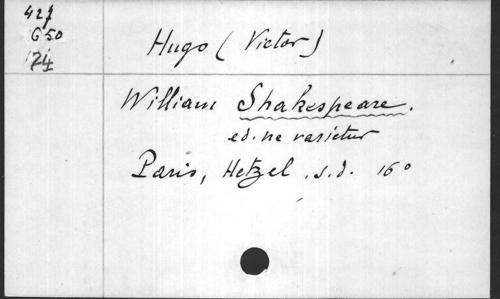 427
G 50
124
Hugo (Victor)
William Shakespeare.
ed. ne varietur
Paris, Hetzel, s.d. 16°